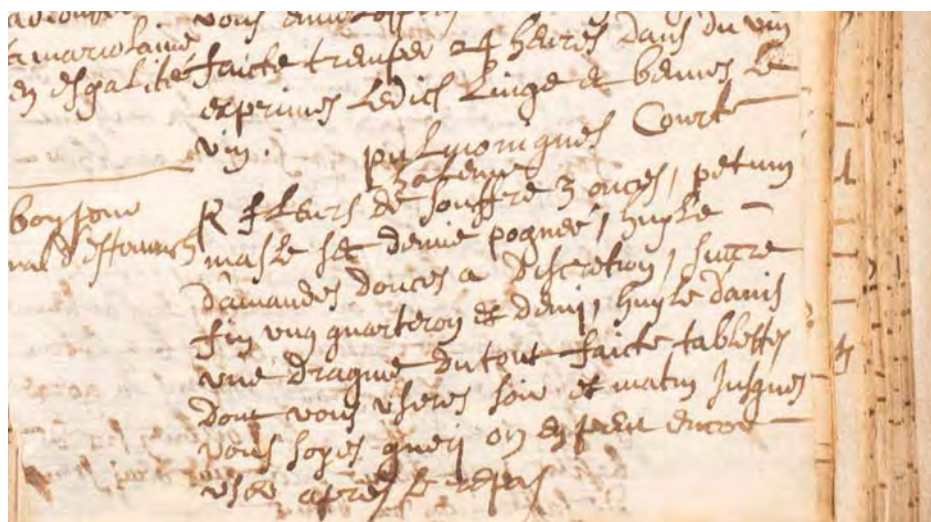 vous
la mariolaine
en esgalité faicte tremper 24 heures dans du vin
exprimes ledict linge et beuves le
vin. pulmoniques Courte
halenne
R fleurs de souffre 3 onces, petum
masle sec demie pognee, huyle
damandes douces a discretion, succre
fin ung quarteron et demy, huyle danis
une dragme du tout faicte tablettes
dont vous userez soir et matin jusques
vous soyes guery on en peut encore
user apres le repas
bon pour
mal d'estomach